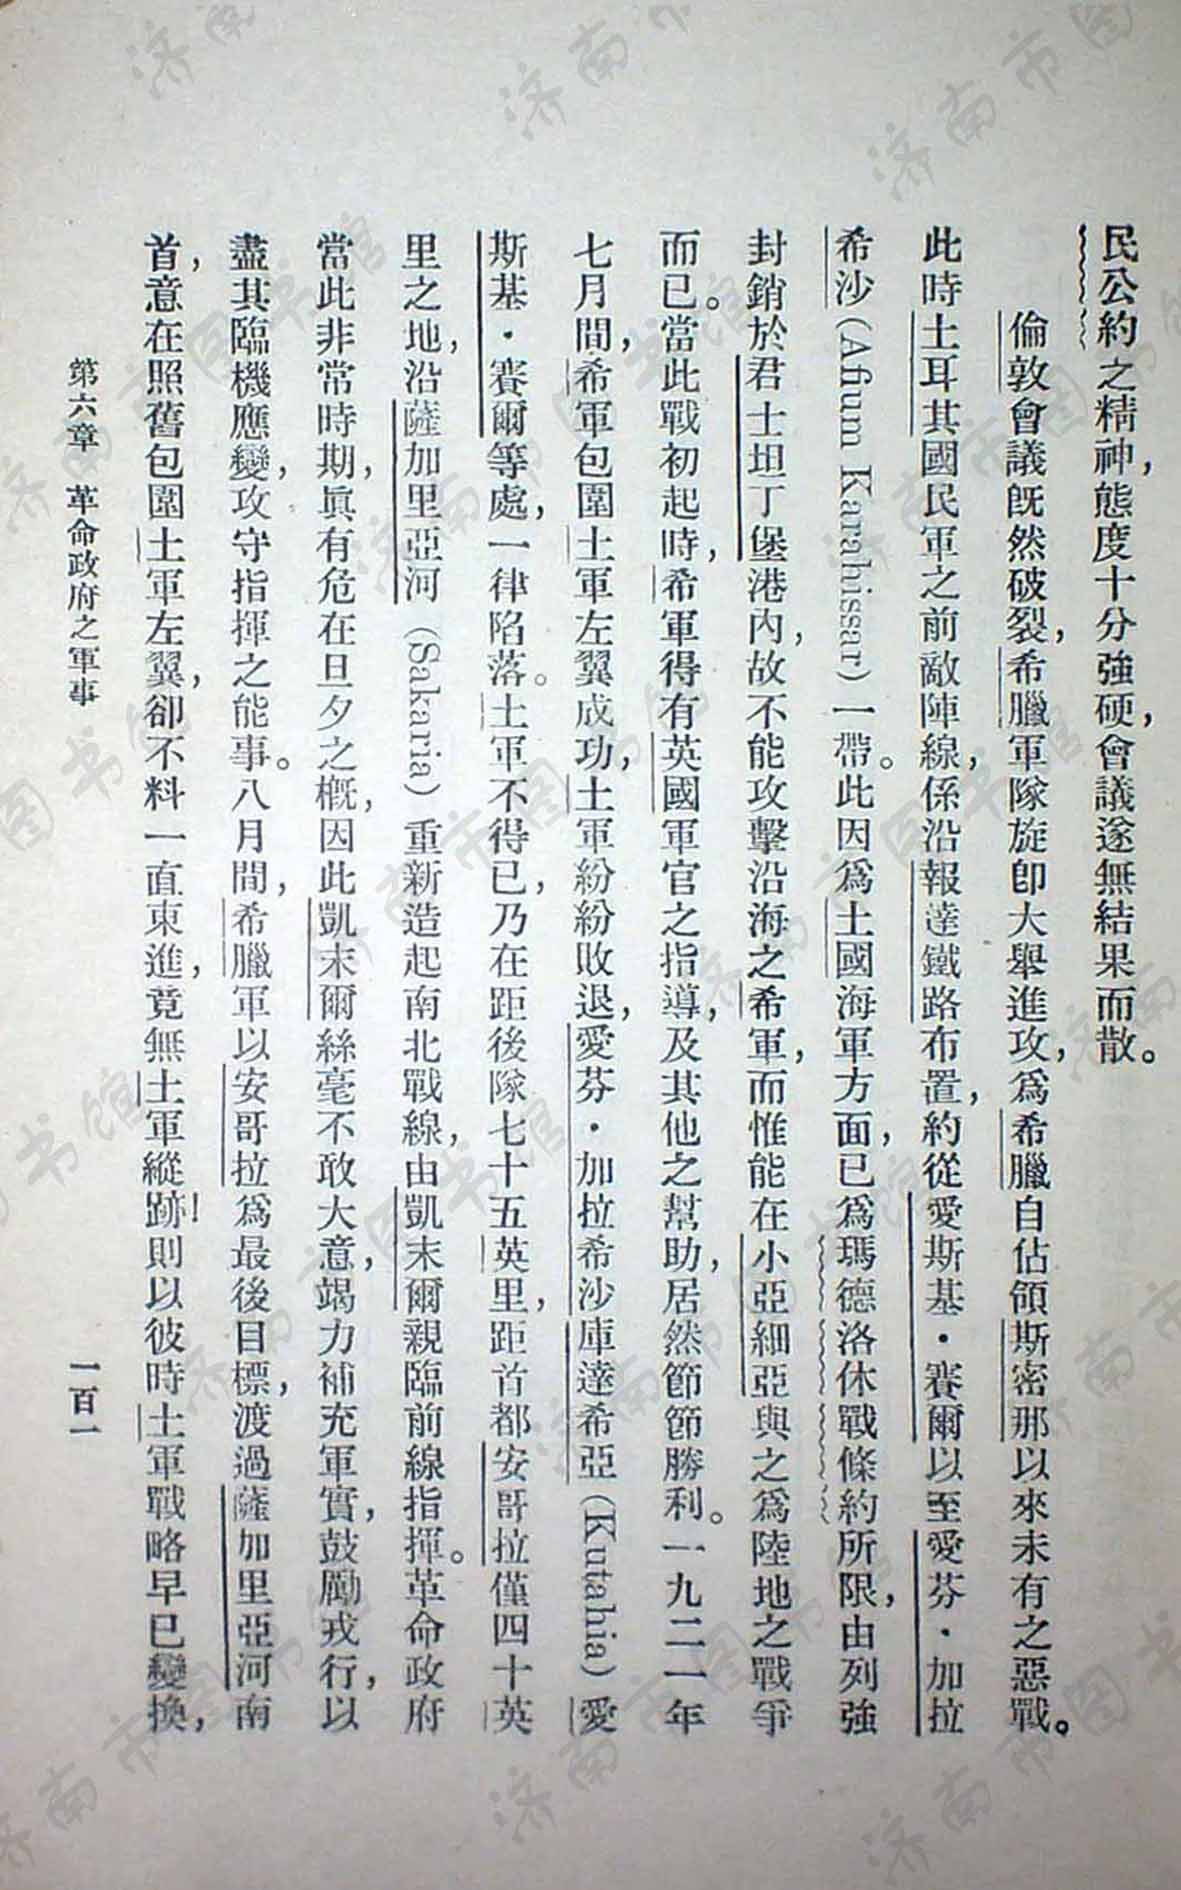 民公約之精神，態度十分強硬，會議遂無結果而散。
倫敦會議既然破裂，希臘軍隊旋卽大舉進攻，爲希臘自佔領斯密那以來未有之惡戰。
此時土耳其國民軍之前敵陣線，係沿報達鐵路布置，約從愛斯基·賽爾以至愛芬·加拉
希沙（Afium Karahissar）一帶。此因爲土國海軍方面，已爲瑪德洛休戰條約所限，由列強
封銷於君士坦丁堡港內，故不能攻擊沿海之希軍，而惟能在小亞細亞與之爲陸地之戰爭
而已。當此戰初起時，希軍得有英國軍官之指導，及其他之幫助，居然節節勝利。一九二一年
七月間，希軍包圍土軍左翼成功，土軍紛紛敗退，愛芬·加拉希沙庫達希亞（Kutahia）愛
斯基·賽爾等處，一律陷落。土軍不得已，乃在距後隊七十五英里，距首都安哥拉僅四十英
里之地，沿薩加里亞河（Sakaria）重新造起南北戰線，由凱末爾親臨前線指揮。革命政府
當此非常時期，眞有危在旦夕之槪，因此凱末爾絲毫不敢大意，竭力補充軍實，鼓勵戎行，以
盡其臨機應變，攻守指揮之能事。八月間，希臘軍以安哥拉爲最後目標，渡過薩加里亞河南
首，意在照舊包圍土軍左翼，卻不料一直東進，竟無土軍縱跡！則以彼時土軍戰略早已變換，
第六章 革命政府之軍事
一百一
济南市图书馆